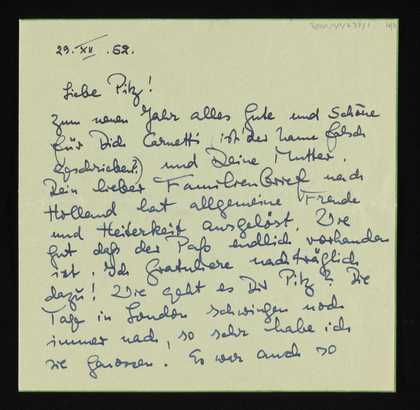 29. XII. 52.
Liebe Pitz!
Zum neuen Jahr alles Gute und Schöne
für Dich Carnetti ist der Name falsch
geschrieben?) und Deine Mutter.
Dein lieber Familienbrief nach
Holland hat allgemeine Freude
und Heiterkeit ausgelöst. Wie
gut daß der Paß endlich vorhanden
ist. Ich gratuliere nachträglich
dazu! Wie geht es Dir Pitz? Die
Tage in London schwingen noch
immer nach, so sehr habe ich
sie genossen. Es war auch so